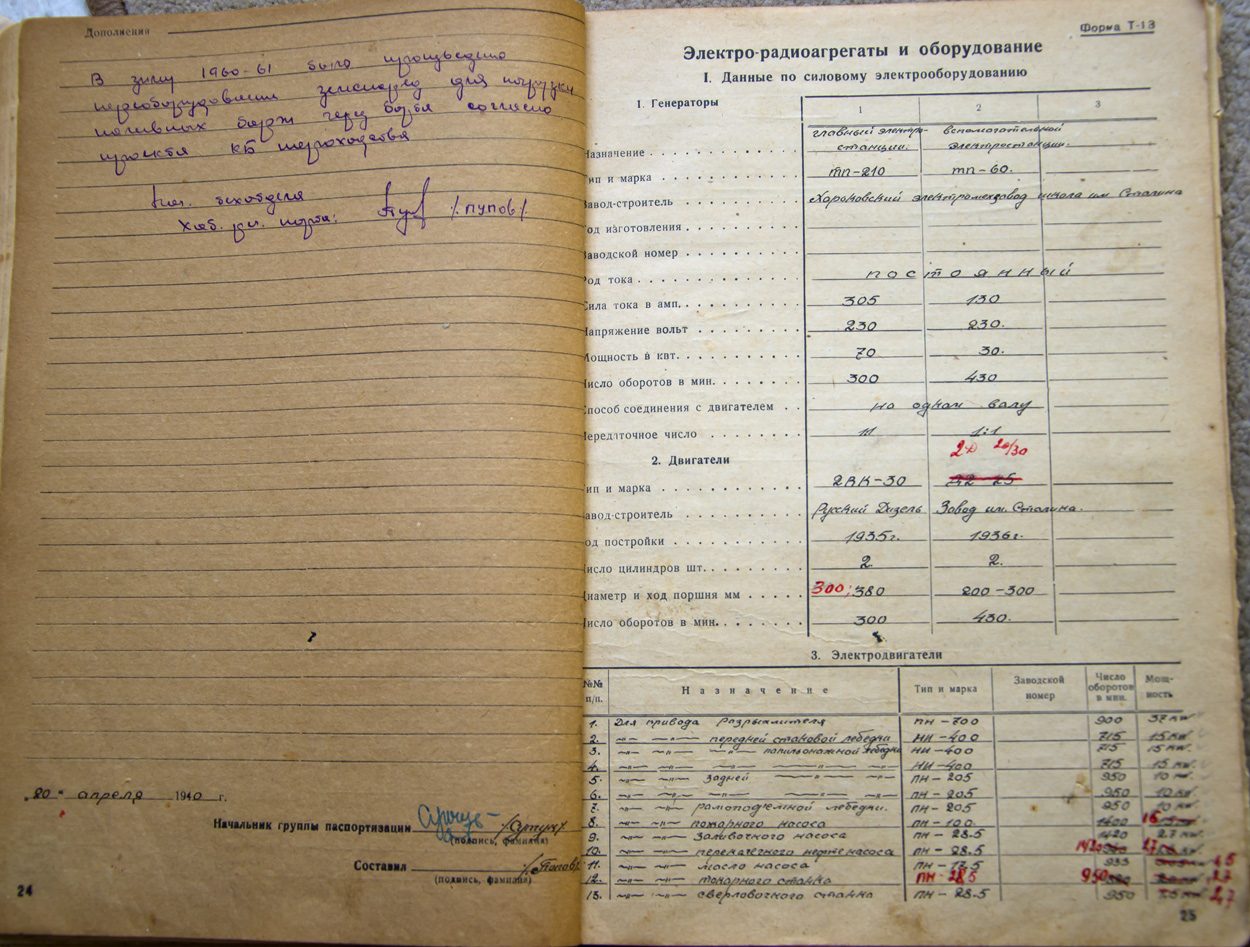 Дополнения
В зиму 1960-61 было произведено
переоборудование земснаряд для погрузки
наливных барж через борта согласно
проекта КБ пароходства
Хаб. реч. порта: /Пупов/
"20" апреля 1940 г.
Начальник группы паспортизации
(подпись, фамилия)
Составил
(подпись, фамилия)
24
Форма Т-13
Электро-радиоагрегаты и оборудование
I. Данные по силовому электрооборудованию
1. Генераторы 1 2 3
Назначение главный электростанции. вспомогательной электростанции.
ип и марка ПП-210 ПП-60.
авод-строитель Харьковский электромехзавод имени им. Сталина
од изготовления
аводской номер
од тока постоянный
ила тока в амп. 305 130
апряжение вольт 230 230.
Мощность в квт. 70 30.
исло оборотов в мин. 300 430
пособ соединения с двигателем на одном валу
ередаточное число 1:1
2. Двигатели 2-D 20/30
ип и марка 2ВК-30
авод-строитель Русский Дизель Завод им. Сталина.
од постройки 1935г. 1936г.
исло цилиндров шт. 2. 2.
иаметр и ход поршня мм 300; 380 200-300
исло оборотов в мин. 300 430.
3. Электродвигатели
№№ п/п. Назначение Тип и марка Заводской номер Число оборотов в мин. Мощность
1. Для привода Разрыхлителя ПН-700 900 37 kw.
2. –"– –"– передней становой лебедки НИ-400 715 15 kw.
3. –"– –"– –"– папильонажной лебедки НИ-400 715 15 kw.
4. –"– –"– –"– –"– –"– НИ-400 715 15 kw.
5. –"– –"– задней –"– –"– ПН-205 950 10 kw.
6. –"– –"– –"– –"– –"– ПН-205 950 10 kw.
7. –"– –"– рамоподъемной лебедки. ПН-205 950 10 kw.
8. –"– –"– пожарного насоса ПН-100 1400 16
9. –"– –"– Заливочного насоса ПН-28.5 1420 2.7 kw.
10. –"– –"– перекачечного нефте насоса ПН-28.5 1420
11. –"– –"– масло насоса ПН-17.5
12. –"– –"– токарного станка ПН-28.5 950 2.7
13. –"– –"– сверловочного станка ПН-28.5 950 2.7
25